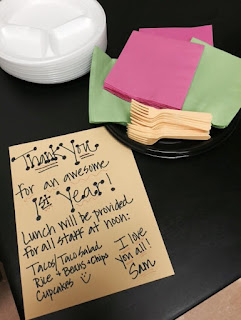 Thank You
for an awesome
1st Year!
Lunch will be provided
for all staff at noon:
Tacos/Taco Salad
Rice + Beans + Chips
Cupcakes
I love
you all!
Sam